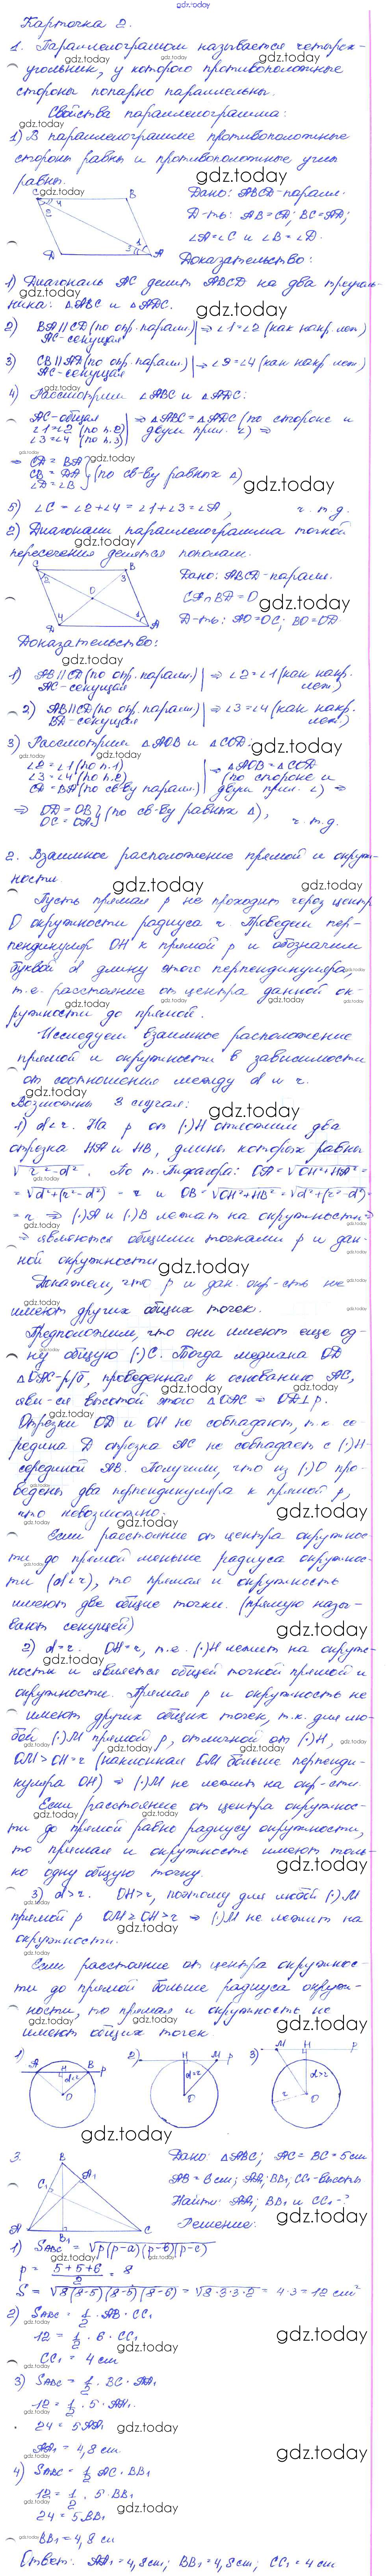 gdz.today
Карточка 2.
1. Параллелограммом называется четырех-
угольник, у которого противоположные
стороны попарно параллельны.
Свойства параллелограмма:
1) В параллелограмме противоположные
стороны равны и противоположные углы
равны.
Дано: ABCD-паралл.
Д-ть: AB=CD; BC=AD;
∠A=∠C и ∠B=∠D.
Доказательство:
1) Диагональ AC делит ABCD на два треуголь-
ника: △ABC и △ADC.
2) BA||CD (по опр. паралл.) | ⇒ ∠1=∠2 (как накр. леж.)
AC-секущая
3) CB||AD (по опр. паралл.) | ⇒ ∠3=∠4 (как накр. леж.)
AC-секущая
4) Рассмотрим ∠ABC и △ADC:
AC-общая | ⇒ △ABC=△ADC (по стороне и
∠1=∠2 (по п.2) двум прил. ∠) ⇒
∠3=∠4 (по п.3)
⇒ CD = BA
CB = DA } (по св-ву равных △)
∠D=∠B
5) ∠C = ∠2+∠4 = ∠1+∠3 = ∠A, ч.т.д.
2) Диагонали параллелограмма точкой
пересечения делятся пополам.
Дано: ABCD-паралл.
CA∩BD=O
Д-ть: AO=OC; BO=OD.
Доказательство:
1) AB||CD (по опр. паралл.) | ⇒ ∠2=∠1 (как накр.
AC-секущая леж.)
2) AB||CD (по опр. паралл.) | ⇒ ∠3=∠4 (как накр.
BD-секущая леж.)
3) Рассмотрим △AOB и △COD:
∠2=∠1 (по п.1) | ⇒ △AOB=△COD
∠3=∠4 (по п.2) (по стороне и
CD=BA (по св-ву паралл.) двум прил. ∠) ⇒
⇒ OD=OB } (по св-ву равных △),
OC=OA ч.т.д.
2. Взаимное расположение прямой и окруж-
ности.
Пусть прямая p не проходит через центр
O окружности радиуса r. Проведем пер-
пендикуляр OH к прямой p и обозначим
буквой d длину этого перпендикуляра
т.е. расстояние от центра данной ок-
ружности до прямой.
Исследуем взаимное расположение
прямой и окружности в зависимости
от соотношения между d и r.
Возможны 3 случая:
1) d<r. На p от (·)H отложим два
отрезка HA и HB, длины которых равны
√r²-d². По т. Пифагора: OA=√OH²+HA²=
=√d²+(r²-d²) = r и OB=√OH²+HB²=√d²+(r²-d²)=
= r ⇒ (·)A и (·)B лежат на окружности ⇒
⇒ являются общими точками p и дан-
ной окружности
Докажем, что p и дан. окр-сть не
имеют других общих точек.
Предположим, что они имеют еще од-
ну общую (·)C. Тогда медиана OD
△OAC-р/б, проведенная к основанию AC,
явл-ся высотой этого △OAC ⇒ OD⊥p.
Отрезки OD и OH не совпадают, т.к. се-
редина D отрезка AC не совпадает с (·)H-
серединой AB. Получили, что из (·)O про-
ведены два перпендикуляра к прямой p,
что невозможно.
Если расстояние от центра окружнос-
ти до прямой меньше радиуса окружнос-
ти (d<r), то прямая и окружность
имеют две общие точки. (прямую назы-
вают секущей)
2) d=r. OH=r, т.е. (·)H лежит на окруж-
ности и является общей точкой прямой и
окружности. Прямая p и окружность не
имеют других общих точек, т.к. для лю-
бой (·)M прямой p, отличной от (·)H,
OM>OH=r (наклонная OM больше перпенди-
куляра OH) ⇒ (·)M не лежит на окр-сти.
Если расстояние от центра окружнос-
ти до прямой равно радиусу окружности,
то прямая и окружность имеют толь-
ко одну общую точку.
3) d>r. OH>r, поэтому для любой (·)M
прямой p OM≥OH>r ⇒ (·)M не лежит на
окружности.
Если расстояние от центра окружнос-
ти до прямой больше радиуса окруж-
ности, то прямая и окружность не
имеют общих точек.
1) A H B p d<r O 2) H M p d=r O 3) M H p d>r r O
3. Дано: △ABC; AC=BC=5см
AB=6см; AA₁; BB₁; CC₁-высоты
Найти: AA₁; BB₁ и CC₁-?
Решение:
1) SABC = √p(p-a)(p-b)(p-c)
p = 5+5+6/2 = 8
S = √8(8-5)(8-5)(8-6) = √8·3·3·2 = 4·3 = 12 см²
2) SABC = 1/2 · AB · CC₁
12 = 1/2 · 6 · CC₁
CC₁ = 4 см
3) SABC = 1/2 · BC · AA₁
12 = 1/2 · 5 · AA₁
24 = 5AA₁
AA₁ = 4,8 см.
4) SABC = 1/2 AC · BB₁
12 = 1/2 · 5 · BB₁
24 = 5BB₁
BB₁ = 4,8 см
Ответ: AA₁=4,8см; BB₁=4,8см; CC₁=4см